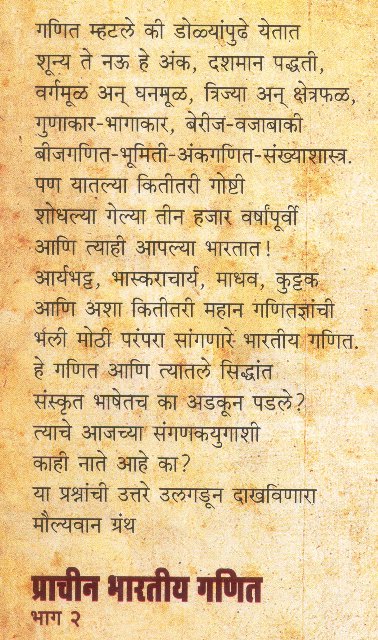 गणित म्हटले की डोळ्यांपुढे येतात
शून्य ते नऊ हे अंक, दशमान पद्धती,
वर्गमूळ अन् घनमूळ, त्रिज्या अन् क्षेत्रफळ,
गुणाकार-भागाकार, बेरीज-वजाबाकी
बीजगणित-भूमिती-अंकगणित-संख्याशास्त्र.
पण यातल्या कितीतरी गोष्टी
शोधल्या गेल्या तीन हजार वर्षांपूर्वी
आणि त्याही आपल्या भारतात!
आर्यभट्ट, भास्कराचार्य, माधव, कुट्टक
आणि अशा कितीतरी महान गणितज्ञांची
भली मोठी परंपरा सांगणारे भारतीय गणित.
हे गणित आणि त्यातले सिद्धांत
संस्कृत भाषेतच का अडकून पडले?
त्याचे आजच्या संगणकयुगाशी
काही नाते आहे का?
या प्रश्नांची उत्तरे उलगडून दाखविणारा
मौल्यवान ग्रंथ
प्राचीन भारतीय गणित
भाग २